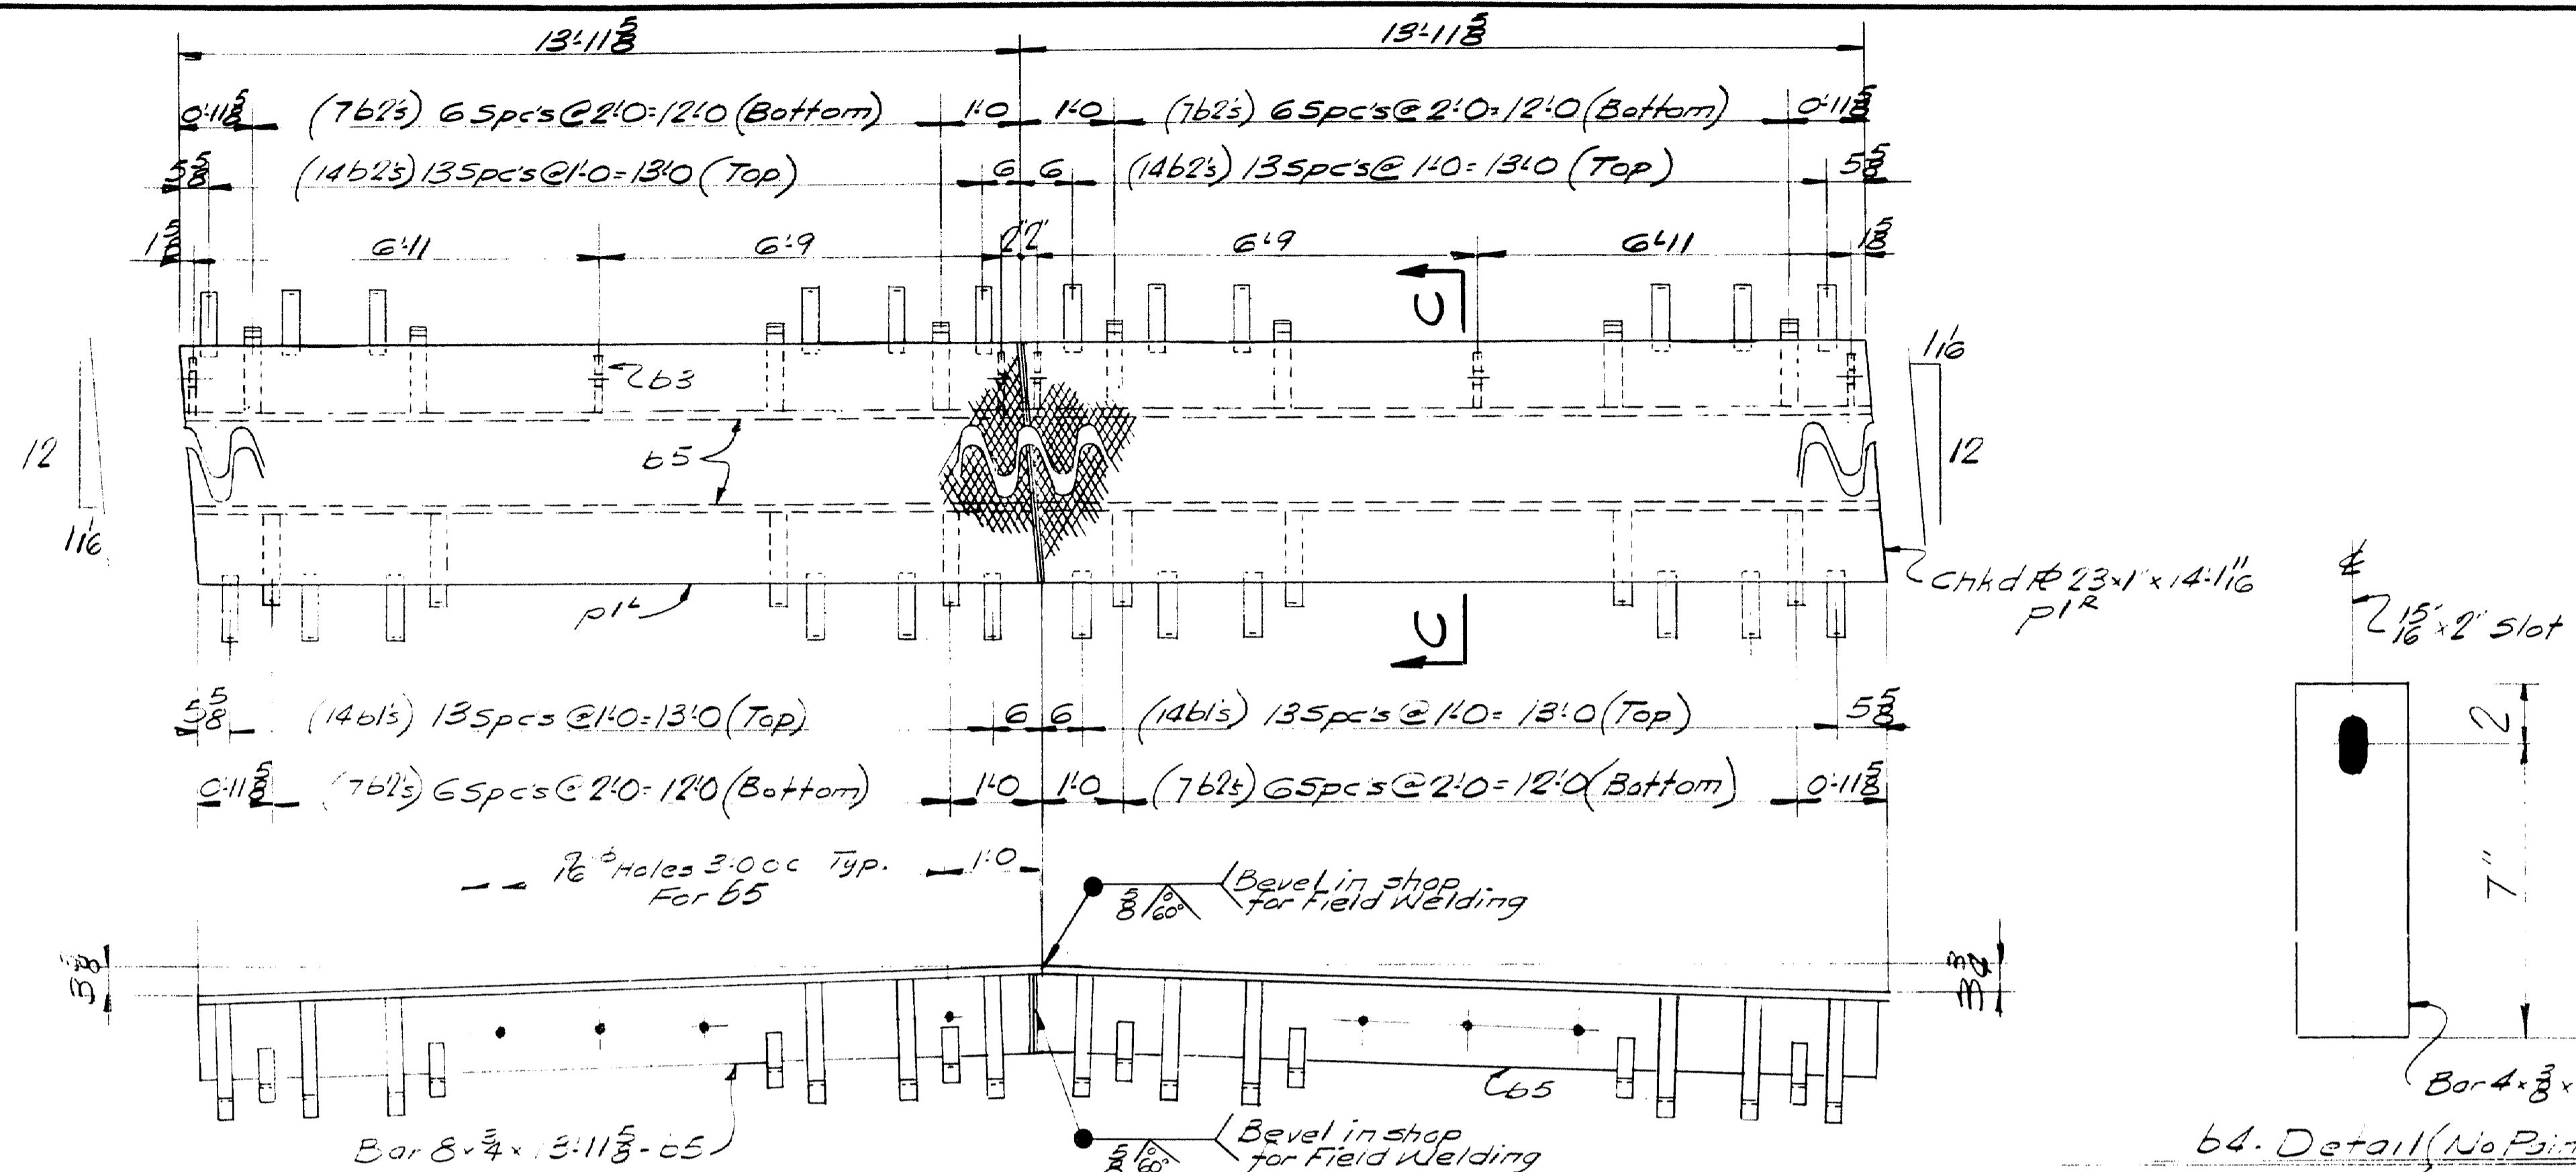 13'-11 5/8 13'-11 5/8
0'-11 5/8 (7b2's) 6 Spc's @ 2'-0 = 12'-0 (Bottom) 1'-0 1'-0 (7b2's) 6 Spc's @ 2'-0 = 12'-0 (Bottom) 0'-11 5/8
5 5/8 (14b2's) 13 Spc's @ 1'-0 = 13'-0 (Top) 6 6 (14b2's) 13 Spc's @ 1'-0 = 13'-0 (Top) 5 5/8
1 5/8 6'-11 6'-9 2" 2" 6'-9 6'-11 1 5/8
C
b3
12
1 1/16
b5
1 1/16
12
p1ᴸ
C
Chkd ℙ 23 x 1" x 14'-1 11/16
p1ᴿ
5 5/8 (14b1's) 13 Spc's @ 1'-0 = 13'-0 (Top) 6 6 (14b1's) 13 Spc's @ 1'-0 = 13'-0 (Top) 5 5/8
0'-11 5/8 (7b2's) 6 Spc's @ 2'-0 = 12'-0 (Bottom) 1'-0 1'-0 (7b2's) 6 Spc's @ 2'-0 = 12'-0 (Bottom) 0'-11 5/8
9/16 ⌀ Holes 3'-0 cc Typ. 1'-0
For b5
5/8 0 60° Bevel in shop
for Field Welding
3
3 3/4
Bar 8 x 3/4 x 13'-11 5/8 - b5
b5
5/8 0 60° Bevel in shop
for Field Welding
℄
15/16 x 2" Slot
2
7"
Bar 4 x 3/8 x
b4 - Detail (No